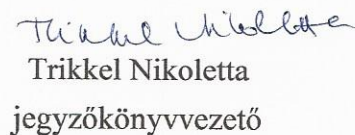 Trikkel Nikoletta
Trikkel Nikoletta
jegyzőkönyvvezető